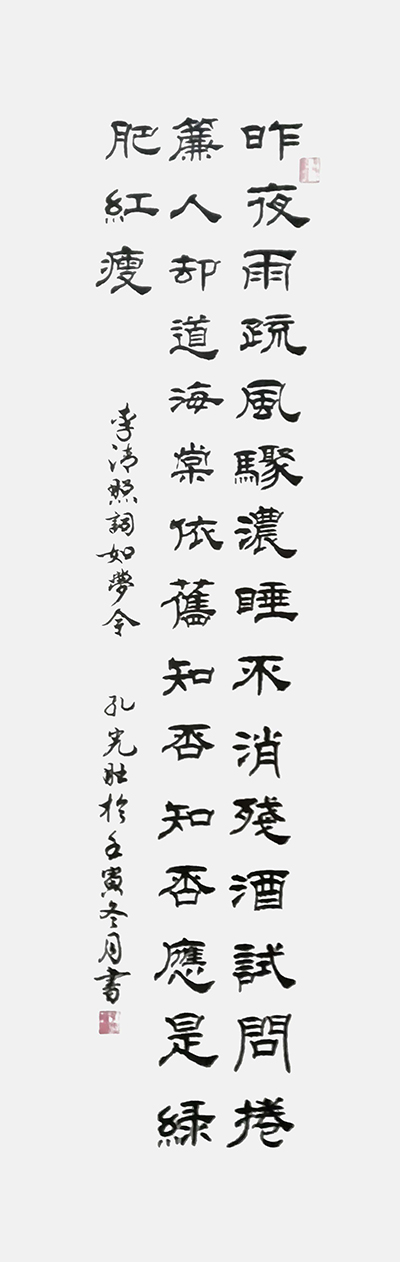 昨夜雨疏風驟濃睡不消殘酒試問捲
簾人却道海棠依舊知否知否應是綠
肥紅瘦
李清照詞如夢令
孔 於壬寅冬月書